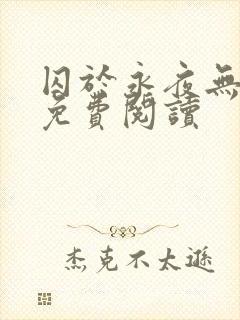 囚於永夜無
免費閱讀
杰克不太遜